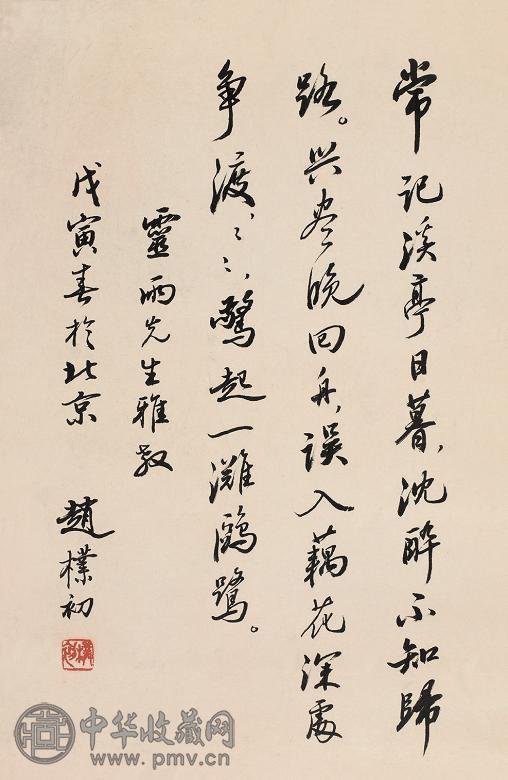 常记溪亭日暮，沈醉不知歸
路。兴尽晚回舟，误入藕花深處
争渡，〻〻，驚起一灘鷗鷺。
靈雨先生雅教
戊寅春於北京
趙樸初
中华收藏网
www.pmv.cn